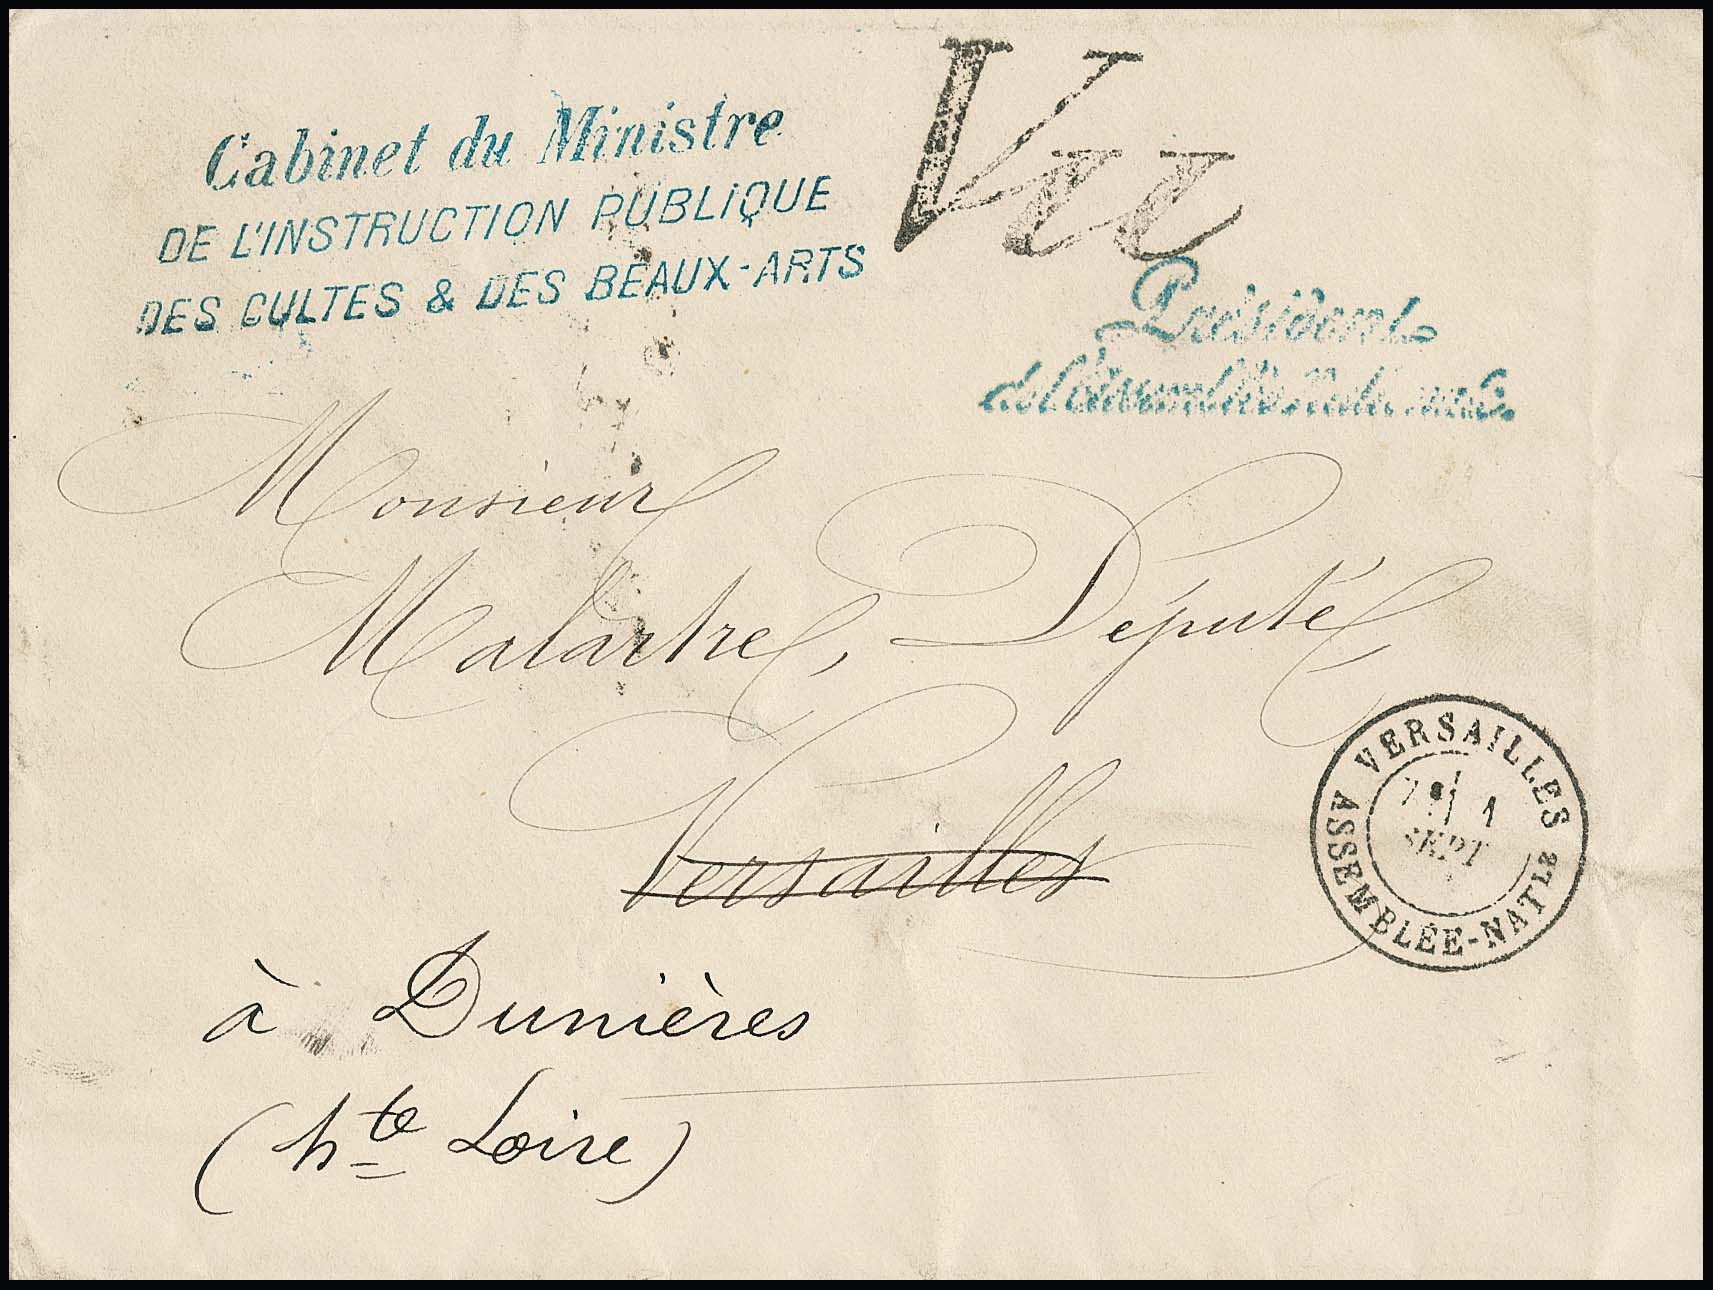 Cabinet du Ministre
DE L'INSTRUCTION PUBLIQUE
DES CULTES & DES BEAUX-ARTS
Vu
Président
de l'Assemblée Nationale
Monsieur
Malartre, Député
Versailles
à Dunières
(hte Loire)
VERSAILLES
1
SEPT
ASSEMBLÉE-NATLE